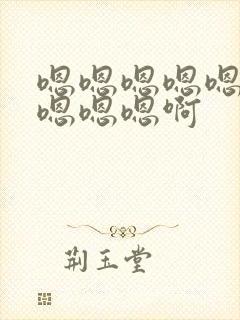 嗯嗯嗯嗯嗯
嗯嗯嗯啊
荆玉堂